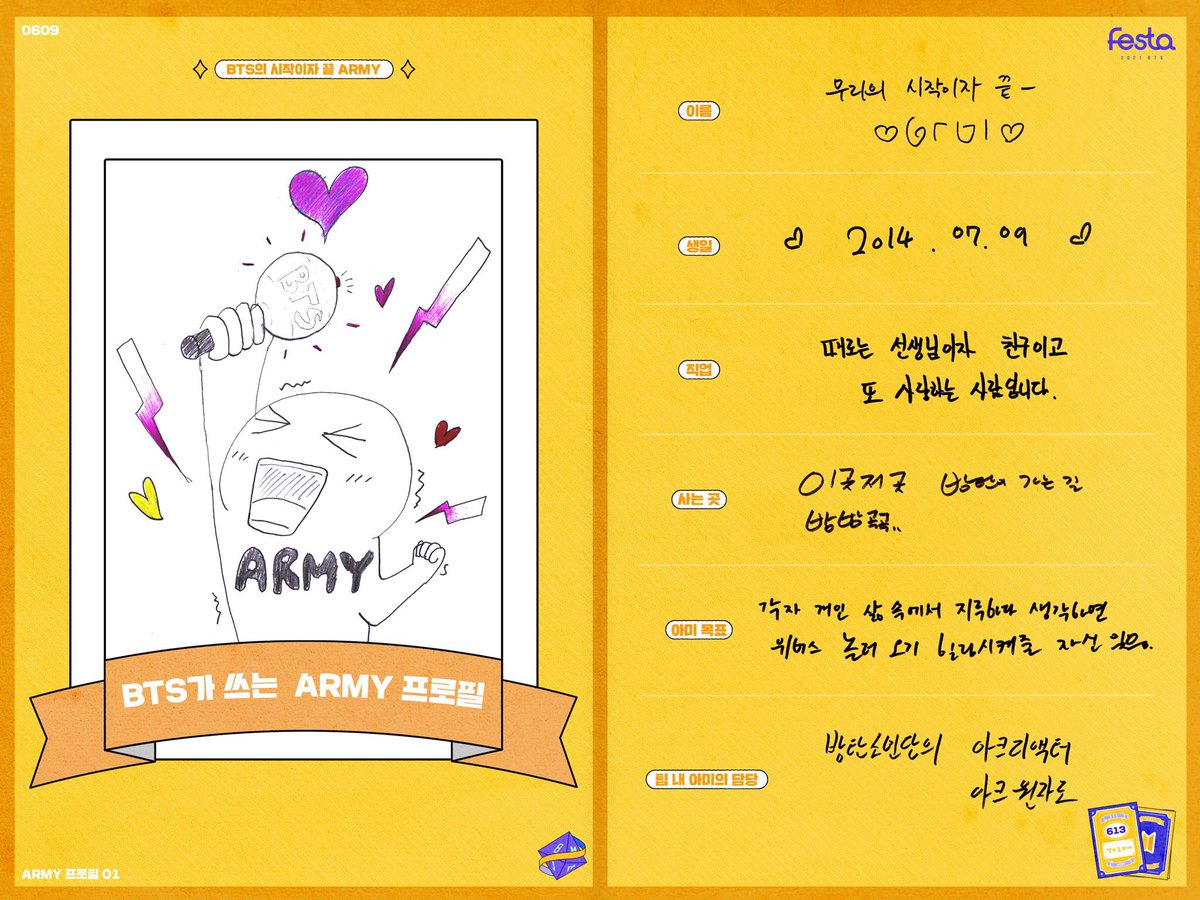 0609
BTS의 시작이자 끝 ARMY
BTS
ARMY
BTS가 쓰는 ARMY 프로필
ARMY 프로필 01
festa
2021 BTS
이름
우리의 시작이자 끝 -
생일
2014. 07. 09
직업
때로는 선생님이자 친구이고
또 사랑하는 사람입니다.
사는 곳
이곳저곳 방탄이 가는 길
방방곡곡..
아미 목표
각자 개인 삶 속에서 지루하다 생각하면
위버스 놀러 오기 힐링시켜줄 자신 있음.
팀 내 아미의 담당
방탄소년단의 아크리액터
아크 원자로
613